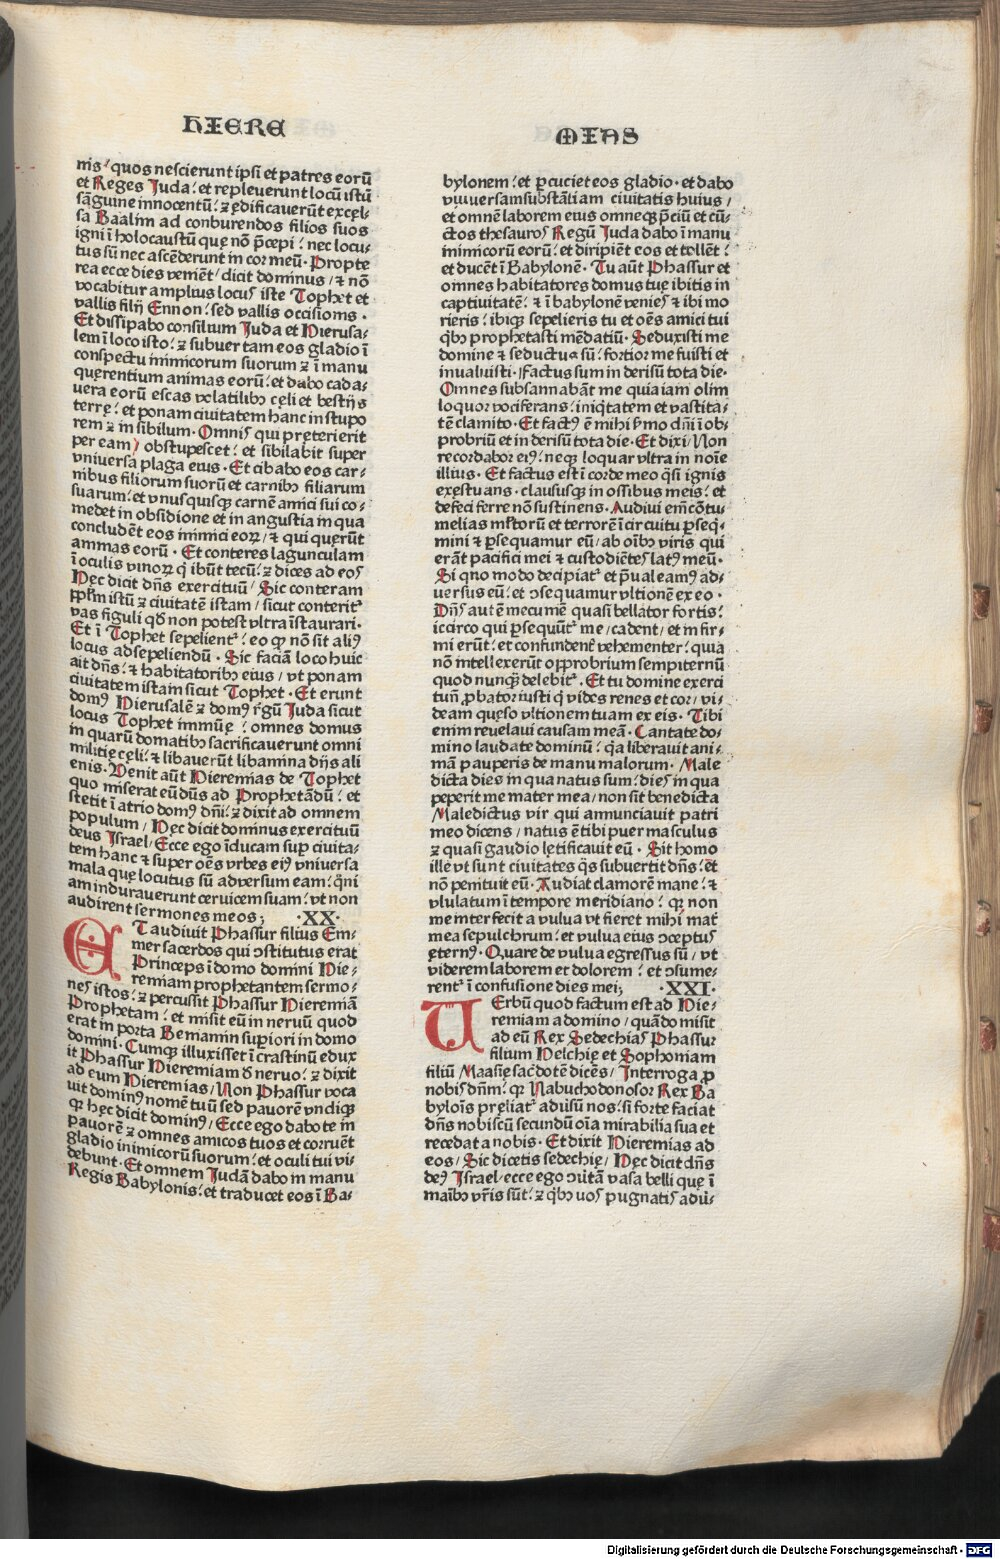 HIERE
MIAS
nis/ quos nescierunt ipsi et patres eorū
et Reges Juda: et repleverunt locū istū
sāguine innocentū: ꝛ ędificaverūt excel⸗
sa Baalim ad conburendos filios suos
igni ī holocaustū quę nō p̄cepi: nec locu⸗
tus sū nec ascēderunt in cor meū. Propte
rea ecce dies veniēt/ dicit dominus/ ꝛ nō
vocabitur amplius locus iste Tophet et
vallis filij Ennon: sed vallis occisionis.
Et dissipabo consilium Juda et Hierusa⸗
lem ī loco isto: ꝛ subuertam eos gladio ī
conspectu inimicorum suorum ꝛ ī manu
quęrentium animas eorū: et dabo cada⸗
uera eorū escas volatilibꝰ cęli et bestijs
terrę: et ponam ciuitatem hanc in stupo
rem ꝛ in sibilum. Omnis qui pręterierit
per eam/ obstupescet: et sibilabit super
vniversa plaga eius. Et cibabo eos car⸗
nibus filiorum suorū et carnibꝰ filiarum
suarum: et vnusquisqꝫ carnē amici sui co⸗
medet in obsidione et in angustia in qua
concludēt eos inimici eoꝝ/ ꝛ qui quęrūt
animas eorū. Et conteres lagunculam
ī oculis viroꝝ q̇ ibūt tecū: ꝛ dices ad eos
Hęc dicit dn̄s exercituū/ Sic conteram
pp̄l'm istū ꝛ civitatē istam/ sicut conterit᷑
vas figuli qd̄ non potest vltra īstaurari.
Et ī Tophet sepelient᷑: eo ꝙ nō sit aliꝰ
locus ad sepeliendū. Sic faciā loco huic
ait dn̄s: ꝛ habitatoribꝰ eius/ vt ponam
civitatem istam sicut Tophet. Et erunt
domꝰ Hierusalē ꝛ domꝰ r̄gū Juda sicut
locus Tophet immūę: omnes domus
in quarū domatibꝰ sacrificaverunt omni
militię cęli: ꝛ libaverūt libamina dijs ali
enis. Venit aūt Hieremias de Tophet
quo miserat eū dūs ad Prophetādū: et
stetit ī atrio domꝰ dn̄i: ꝛ dixit ad omnem
populum/ Hęc dicit dominus exercituū
deus Israel/ Ecce ego īducam sup̱ civita⸗
tem hanc ꝛ super oēs vrbes eiꝰ vniversa
mala quę locutus sū adversum eam: qm̄
am induraverunt cervicem suam: vt non
audirent sermones meos; ·XX·
ET audivit Phassur filius Em⸗
mer sacerdos qui ↄstitutus erat
Princeps ī domo domini Hie⸗
remiam prophetantem sermo⸗
nes istos: ꝛ percussit Phassur Hieremiā
Prophetam: et misit eū in neruū quod
erat in porta Beniamin sup̱iori in domo
domini. Cumqꝫ illuxisset ī crastinū edux
it Phassur Hieremiam d̄ neruo: ꝛ dixit
ad eum Hieremias/ Non Phassur voca
uit dominꝰ nomē tuū sed pavorē vndiqꝫ
ꝙ hęc dicit dominꝰ/ Ecce ego dabo te in
pavorē ꝛ omnes amicos tuos et corruēt
gladio inimicorū suorum: et oculi tui vi⸗
debunt. Et omnem Judā dabo in manu
Regis Babylonis: et traducet eos ī Ba⸗
bylonem: et p̱cuciet eos gladio. et dabo
vniversam substātiam civitatis huius/
et omnē laborem eius omneqꝫ p̄ciū et cū⸗
ctos thesauros Regū Juda dabo ī manu
inimicorū eorū: et diripiēt eos et tollēt:
et ducēt ī Babylonē. Tu aūt Phassur et
omnes habitatores domus tuę ibitis in
captivitatē: ꝛ ī babylonē venies ꝛ ibi mo
rieris: ibiqꝫ sepelieris tu et oēs amici tui
qb̄ꝰ prophetasti mēdatiū. Seduxisti me
domine ꝛ seductus sū: fortior me fuisti et
invaluisti. Factus sum in derisū tota die.
Omnes subsannabāt me quia iam olim
loquor vociferans: iniq̇tatem et vastita⸗
tē clamito. Et factꝰ ē mihi s̄mo dn̄i ī ob⸗
probriū et in derisū tota die. Et dixi/ Non
recordabor eiꝰ: neqꝫ loquar vltra in noīe
illius. Et factus est ī corde meo q̄si ignis
exęstuans. claususqꝫ in ossibus meis: et
defeci ferre nō sustinens. Audivi em̄ cōtu⸗
melias ml'torū et terrorē ī circuitu p̱seq⸗
mini ꝛ p̱sequamur eū/ ab oībꝰ viris qui
erāt pacifici mei ꝛ custodiētes latꝰ meū.
Si q̊ modo decipiat᷑ et p̄valeamꝰ ad⸗
versus eū: et ↄsequamur vltionē ex eo.
Dn̄s autē mecum ē quasi bellator fortis:
iccirco qui p̱sequūt᷑ me/ cadent/ et infir⸗
mi erūt: et confundent᷑ vehementer: quia
nō intellexerūt opprobrium sempiternū
quod nunqꝫ delebit᷑. Et tu domine exerci
tuū p̱bator iusti q̇ vides renes et cor/ vi⸗
deam quęso vltionem tuam ex eis. Tibi
enim revelavi causam meā. Cantate do⸗
mino laudate dominū: qa liberavit ani⸗
mā pauperis de manu malorum. Male
dicta dies in qua natus sum: dies in qua
peperit me mater mea/ non sit benedicta
Maledictus vir qui annunciavit patri
meo dicens/ natus ē tibi puer masculus
ꝛ quasi gaudio lętificavit eū. Sit homo
ille vt sunt civitates q̄s subvertit dn̄s: et
nō penituit eū. Audiat clamorē mane: ꝛ
vlulatum ī tempore meridiano: qꝫ non
me interfecit a vulva vt fieret mihi mat᷑
mea sepulchrum: et vulva eius ↄceptus
ęternꝰ. Quare de vulva egressus sū/ vt
viderem laborem et dolorem: et ↄsume⸗
rent᷑ ī confusione dies mei; ·XXI·
VErbū quod factum est ad Hie⸗
remiam a domino/ quādo misit
ad eū Rex Sedechias Phassur
filium Helchię et Sophoniam
filiū Maasię sac̄dotē dicēs/ Interroga p̱
nobis dn̄m: qꝛ Nabuchodonosor Rex Ba
bylōis pręliat᷑ adūsū nos: si forte faciat
dn̄s nobiscū secundū oīa mirabilia sua et
recedat a nobis. Et dixit Hieremias ad
eos/ Sic dicetis sedechię/ Hęc dicit dn̄s
deꝰ Israel/ ecce ego ↄūtā vasa belli quę ī
maībꝰ vr̄is sūt: ꝛ qb̄ꝰ vos pugnatis adū⸗
Digitalisierung gefördert durch die Deutsche Forschungsgemeinschaft - DFG